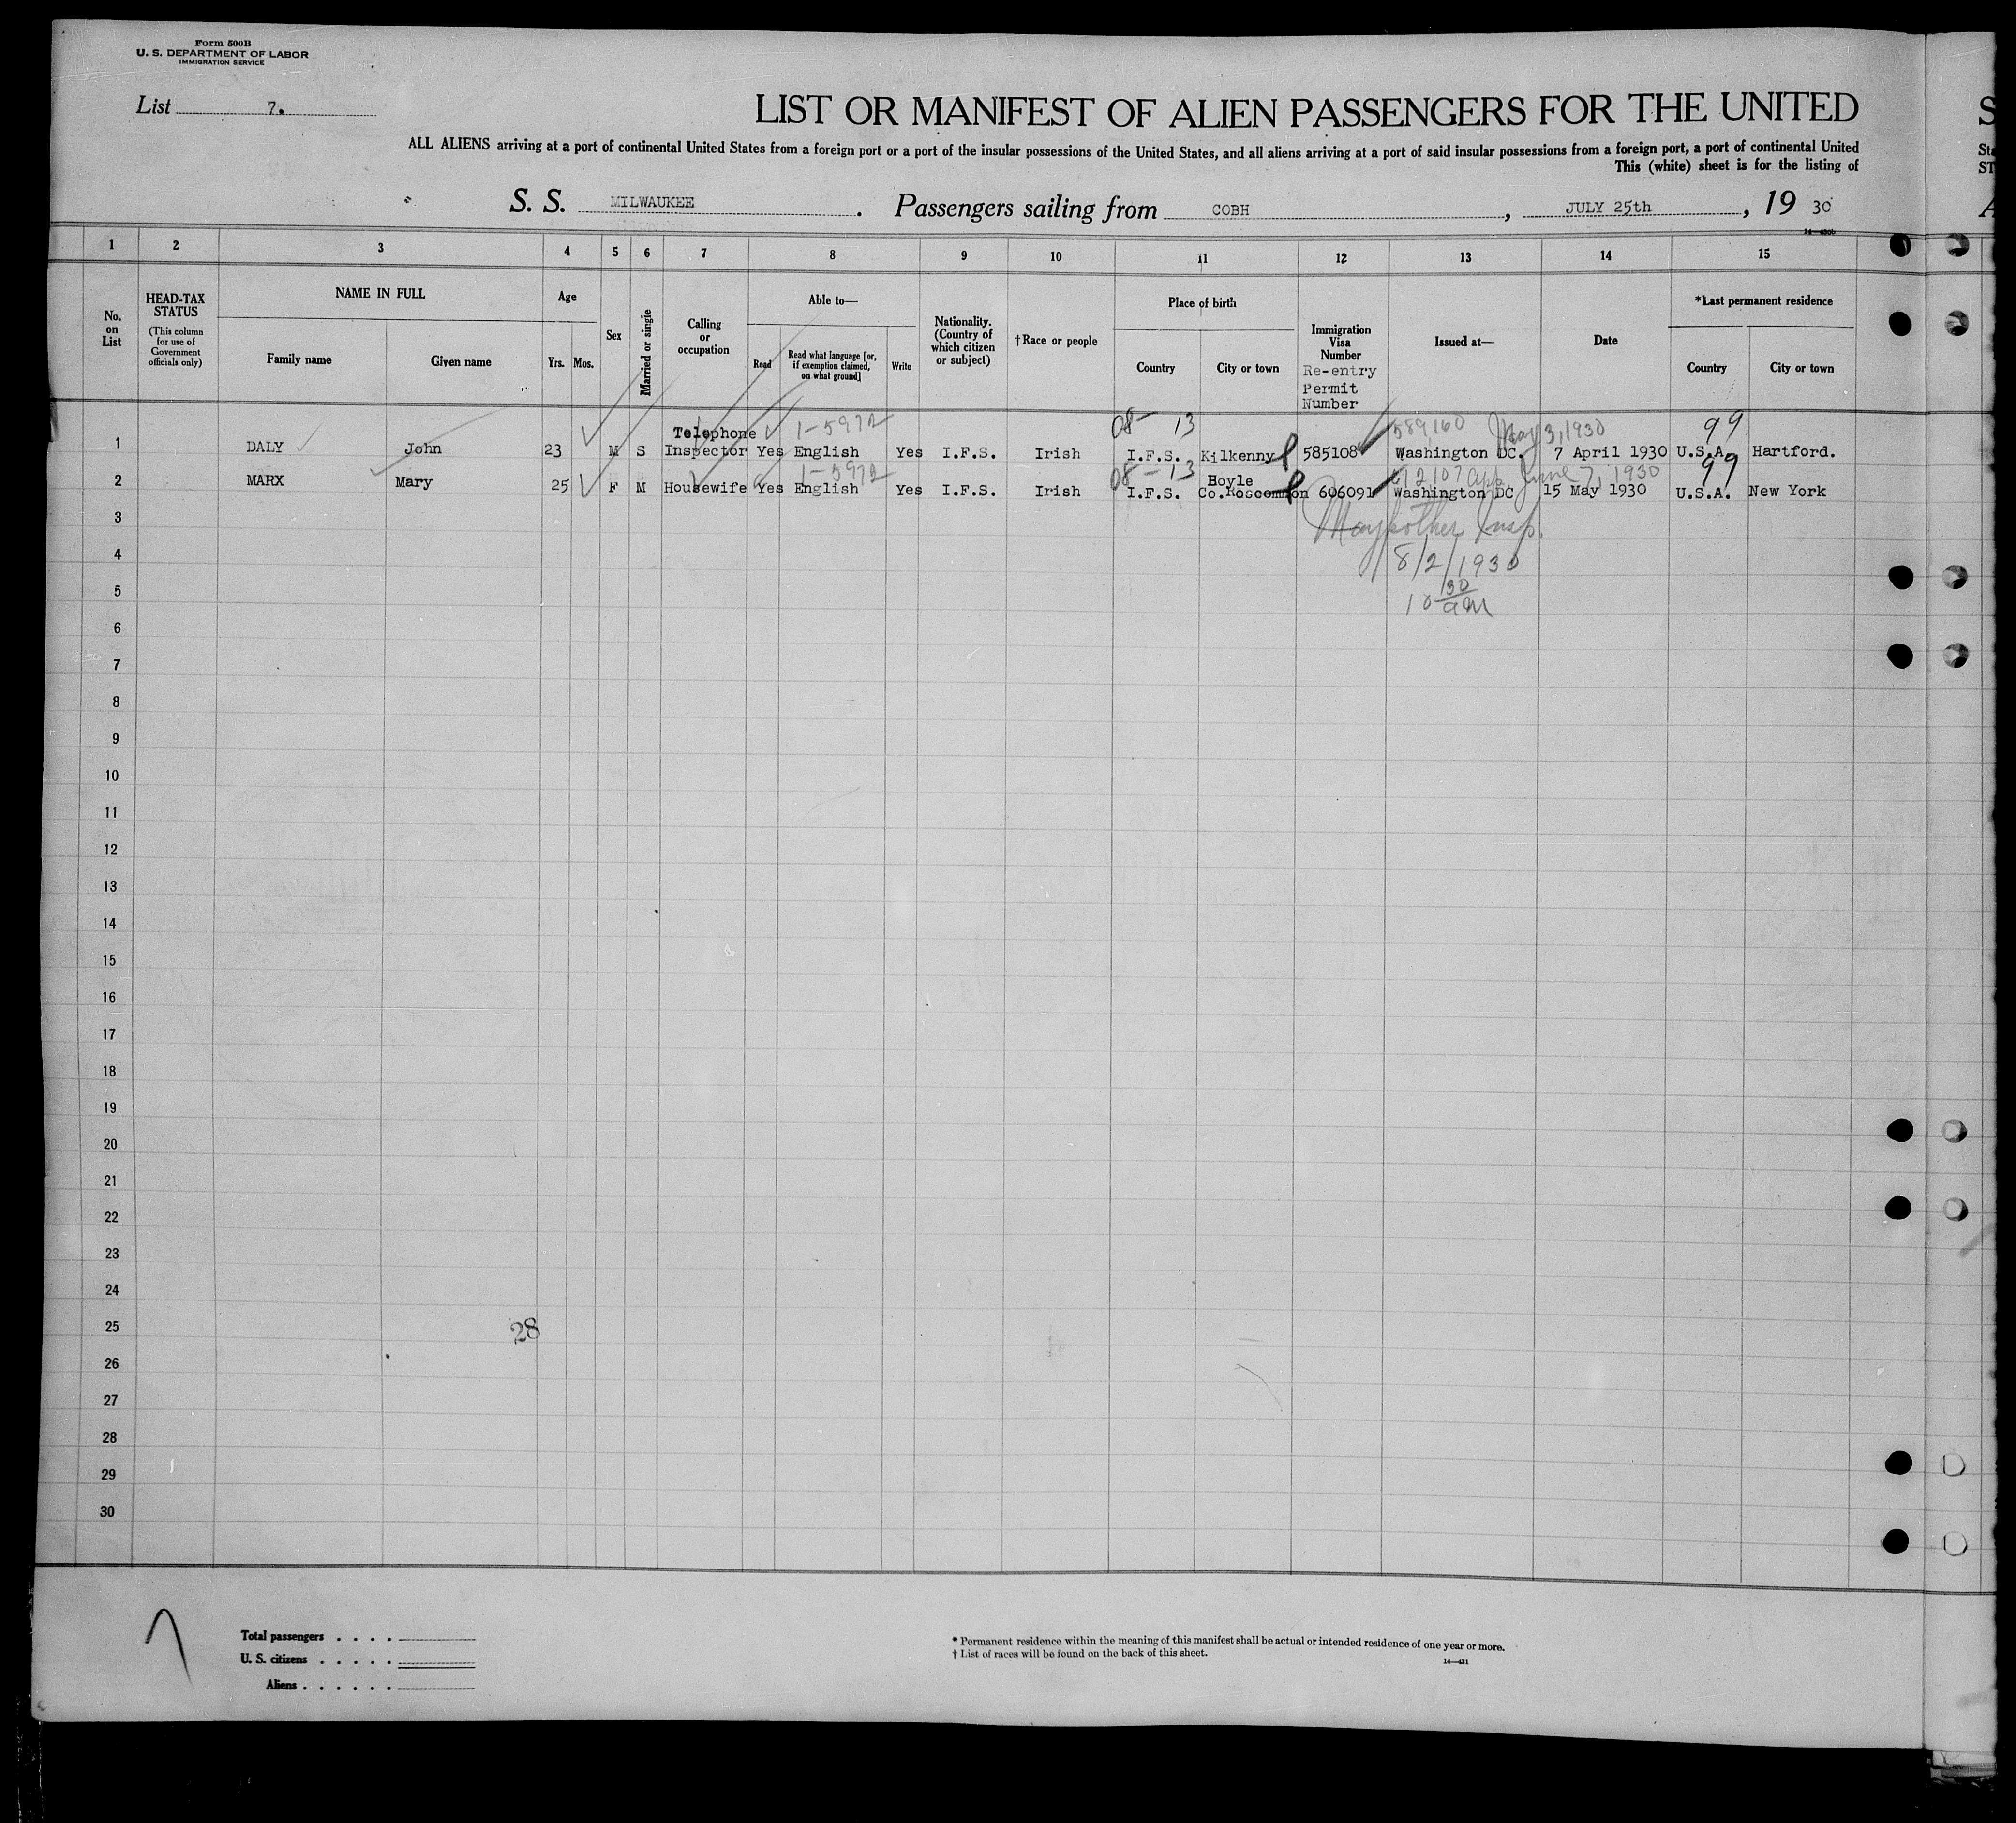 Form 500B
U. S. DEPARTMENT OF LABOR
IMMIGRATION SERVICE
List 7.
LIST OR MANIFEST OF ALIEN PASSENGERS FOR THE UNITED
S
ALL ALIENS arriving at a port of continental United States from a foreign port or a port of the insular possessions of the United States, and all aliens arriving at a port of said insular possessions from a foreign port, a port of continental United
This (white) sheet is for the listing of
S. S. MILWAUKEE . Passengers sailing from COBH , JULY 25th , 19 30
1 2 3 4 5 6 7 8 9 10 11 12 13 14 15
No. on List
HEAD-TAX STATUS
(This column for use of Government officials only)
NAME IN FULL
Family name
Given name
Age
Yrs. Mos.
Sex
Married or single
Calling or occupation
Able to—
Read
Read what language [or, if exemption claimed, on what ground]
Write
Nationality. (Country of which citizen or subject)
†Race or people
Place of birth
Country
City or town
Immigration Visa Number
Re-entry Permit Number
Issued at—
Date
*Last permanent residence
Country
City or town
1-5972 08- 13 589160 May 3, 1930 99
1 DALY John 23 M S Telephone Inspector Yes English Yes I.F.S. Irish I.F.S. Kilkenny 585108 Washington DC. 7 April 1930 U.S.A. Hartford.
1-5972 08-13 612107 June 7, 1930 99
2 MARX Mary 25 F M Housewife Yes English Yes I.F.S. Irish I.F.S. Boyle Co.Roscommon 606091 Washington DC 15 May 1930 U.S.A. New York
3
Insp.
4
8/2/1930
5
10 30 am
6
7
8
9
10
11
12
13
14
15
16
17
18
19
20
21
22
23
24
25
28
26
27
28
29
30
Total passengers . . . .
U. S. citizens . . . . .
Aliens . . . . . .
* Permanent residence within the meaning of this manifest shall be actual or intended residence of one year or more.
† List of races will be found on the back of this sheet.
14—431